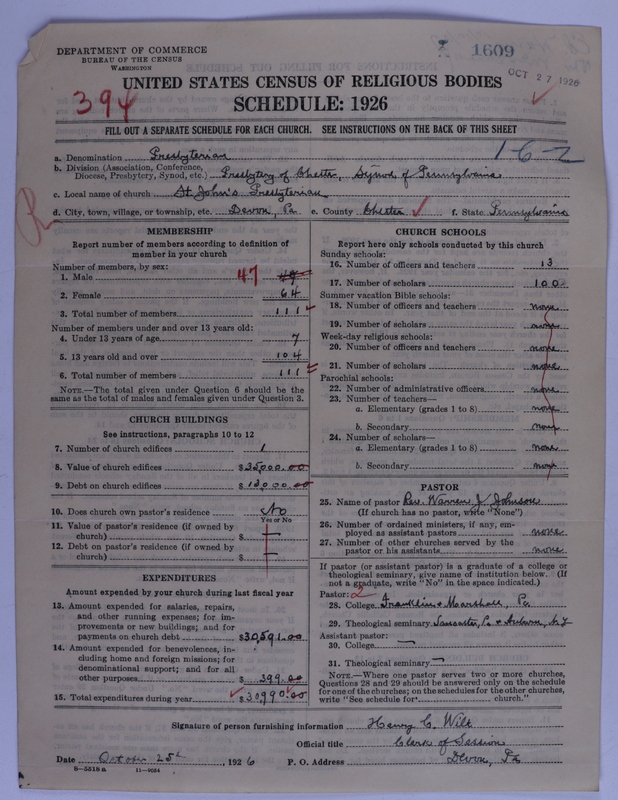 DEPARTMENT OF COMMERCE
BUREAU OF THE CENSUS
WASHINGTON
1609
OCT 27 1926
UNITED STATES CENSUS OF RELIGIOUS BODIES
394
SCHEDULE: 1926
FILL OUT A SEPARATE SCHEDULE FOR EACH CHURCH. SEE INSTRUCTIONS ON THE BACK OF THIS SHEET
a. Denomination Presbyterian
16-2
b. Division (Association, Conference, Diocese, Presbytery, Synod, etc.) Presbytery of Chester, Synod of Pennsylvania
c. Local name of church St John's Presbyterian
d. City, town, village, or township, etc. Devon, Pa e. County Chester f. State Pennsylvania
MEMBERSHIP
Report number of members according to definition of member in your church
Number of members, by sex:
1. Male 47
2. Female 64
3. Total number of members 111
Number of members under and over 13 years old:
4. Under 13 years of age 7
5. 13 years old and over 104
6. Total number of members 111
NOTE.—The total given under Question 6 should be the same as the total of males and females given under Question 3.
CHURCH BUILDINGS
See instructions, paragraphs 10 to 12
7. Number of church edifices 1
8. Value of church edifices $35000.00
9. Debt on church edifices $
10. Does church own pastor's residence No
Yes or No
11. Value of pastor's residence (if owned by church) $
12. Debt on pastor's residence (if owned by church) $
EXPENDITURES
Amount expended by your church during last fiscal year
13. Amount expended for salaries, repairs, and other running expenses; for improvements or new buildings; and for payments on church debt $30,591.00
14. Amount expended for benevolences, including home and foreign missions; for denominational support; and for all other purposes 399.00
15. Total expenditures during year $30990.00
CHURCH SCHOOLS
Report here only schools conducted by this church
Sunday schools:
16. Number of officers and teachers 13
17. Number of scholars 100
Summer vacation Bible schools:
18. Number of officers and teachers none
19. Number of scholars none
Week-day religious schools:
20. Number of officers and teachers none
21. Number of scholars none
Parochial schools:
22. Number of administrative officers none
23. Number of teachers—
a. Elementary (grades 1 to 8) none
b. Secondary none
24. Number of scholars—
a. Elementary (grades 1 to 8) none
b. Secondary none
PASTOR
25. Name of pastor Rev. Warren J Johnson
(If church has no pastor, write "None")
26. Number of ordained ministers, if any, employed as assistant pastors none
27. Number of other churches served by the pastor or his assistants none
If pastor (or assistant pastor) is a graduate of a college or theological seminary, give name of institution below. (If not a graduate, write "No" in the space indicated.)
Pastor: 2
28. College Franklin & Marshall, Pa
29. Theological seminary Lancaster, Pa & Auburn, N.Y
Assistant pastor:
30. College —
31. Theological seminary —
NOTE.—Where one pastor serves two or more churches, Questions 28 and 29 should be answered only on the schedule for one of the churches; on the schedules for the other churches, write "See schedule for church."
Signature of person furnishing information Henry C. Wilt
Official title Clerk of Session
Date October 25th, 1926 P. O. Address Devon, Pa
8—5518a 11—9034